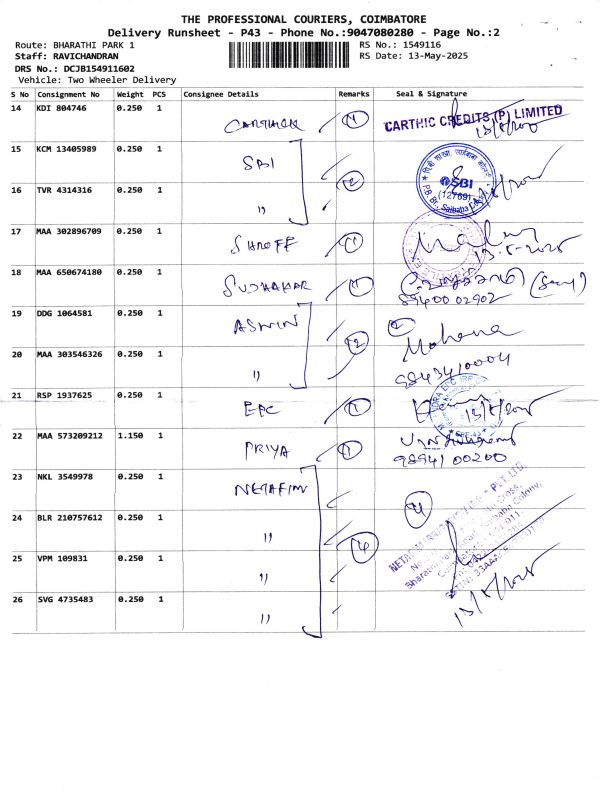 THE PROFESSIONAL COURIERS, COIMBATORE
Delivery Runsheet - P43 - Phone No.:9047080280 - Page No.:2
Route: BHARATHI PARK 1
RS No.: 1549116
Staff: RAVICHANDRAN
RS Date: 13-May-2025
DRS No.: DCJB154911602
Vehicle: Two Wheeler Delivery
S No Consignment No Weight PCS Consignee Details Remarks Seal & Signature
14 KDI 804746 0.250 1 CARTHICK 1 CARTHIC CREDITS (P) LIMITED
13/5/2025
15 KCM 13405989 0.250 1 SBI
2 SBI (12769)
16 TVR 4314316 0.250 1 "
17 MAA 302896709 0.250 1 SHROFF 1
13.5.2025
18 MAA 650674180 0.250 1 SUDHAKAR 1
89400 02902
19 DDG 1064581 0.250 1 ASWIN 2
2 Mohana
20 MAA 303546326 0.250 1 " 9843410004
21 RSP 1937625 0.250 1 EPC 1 13/5/2025
22 MAA 573209212 1.150 1 PRIYA 1
98941 00200
23 NKL 3549978 0.250 1 NETAFIM
4
24 BLR 210757612 0.250 1 " 4
25 VPM 109831 0.250 1 "
26 SVG 4735483 0.250 1 "
13/5/2025